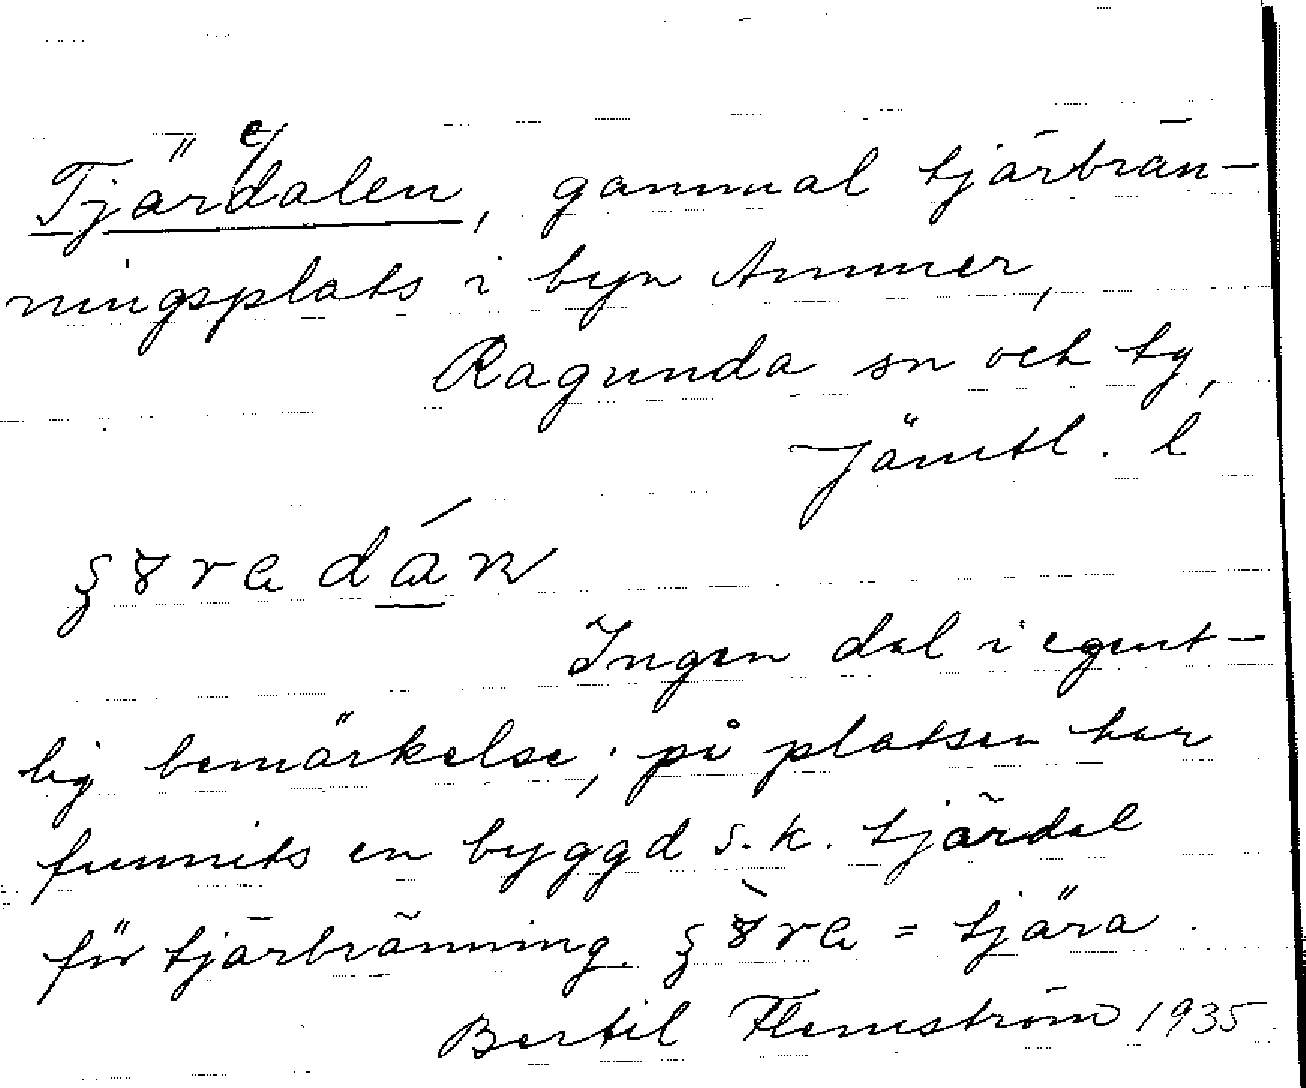 Tjäredalen, gammal tjärbrän-
ningsplats i byn Ammer,
Ragunda sn och tg,
Jämtl. l
Ingen dal i egent-
lig bemärkelse; på platsen har
funnits en byggd s.k. tjärdal
för tjärbränning. = tjära.
Bertil Flemström 1935